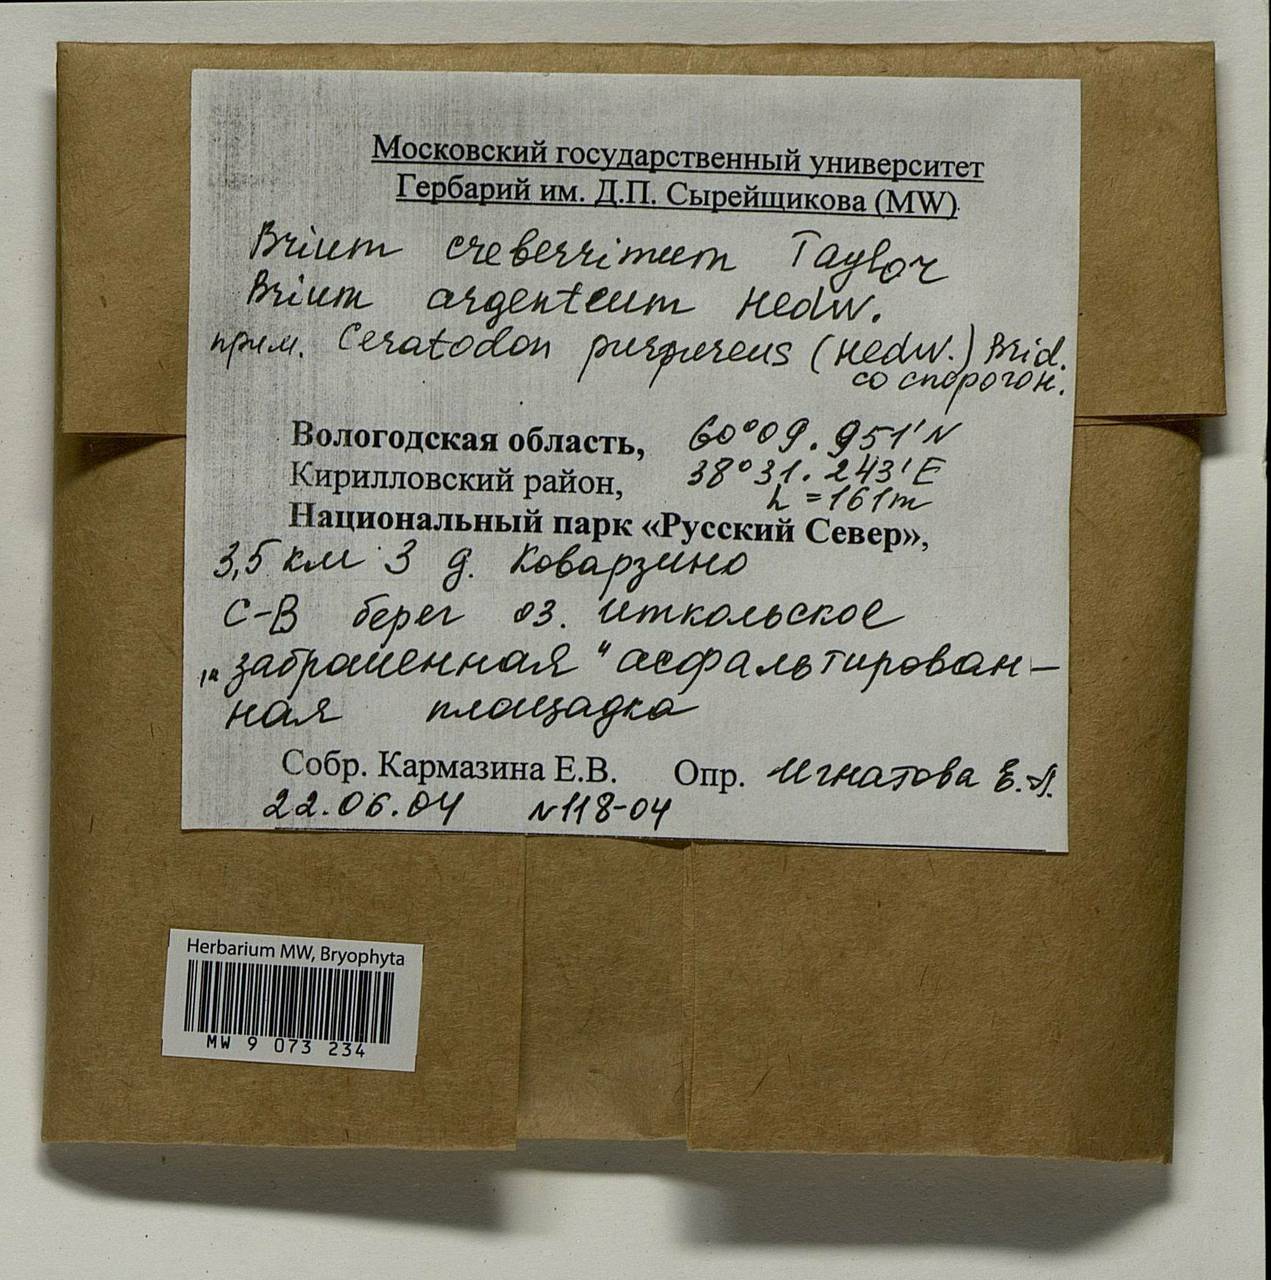 Московский государственный университет
Гербарий им. Д.П. Сырейщикова (MW)
Brium creberrimum Taylor
Brium argenteum Hedw.
прим. Ceratodon purpureus (Hedw.) Brid.
со спорогон.
Вологодская область, 60°09.951'N
Кирилловский район, 38°31.243'E
h = 161m
Национальный парк «Русский Север»,
3,5 км З д. Коварзино
С-В берег оз. Иткольское
„заброшенная" асфальтирован-
ная площадка
Собр. Кармазина Е.В. Опр. Игнатова Е.А.
22.06.04 N118-04
Herbarium MW, Bryophyta
MW 9 073 234